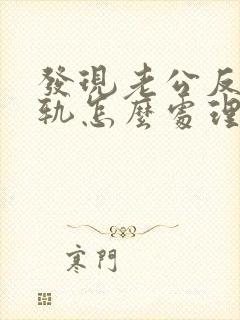 發現老公反
軌怎麼處理
寒門